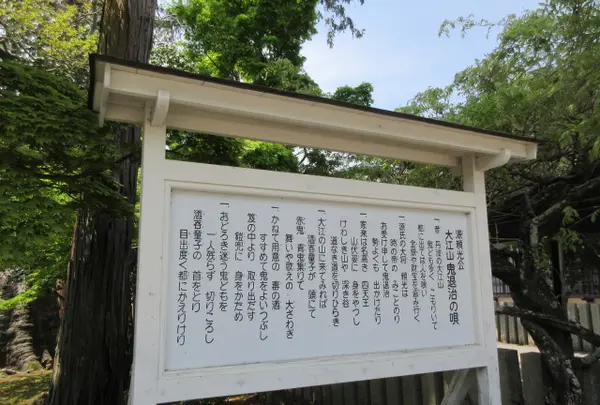 源頼光公
大江山鬼退治の唄
一昔 丹波の大江山
鬼ども多く こもりいて
都に出ては人を喰い
金銀や財宝を盗み行く
一源氏の大将 頼光は
時の帝の みことのり
お受け申して鬼退治
勢よくも 出かけたり
一家来は名高き 四天王
山伏姿に 身をやつし
けわしき山や 深き谷
道なき道を切りひらき
一大江の山に来てみれば
酒呑童子が 頭にて
赤鬼 青鬼集りて
舞いや歌えの 大さわぎ
一かねて用意の 毒の酒
すすめて鬼をよいつぶし
笈の中より 取り出だす
鎧兜に 身をかため
一おどろき迷う鬼どもを
一人残らず 切りころし
酒呑童子の 首をとり
目出度く都にかえりけり